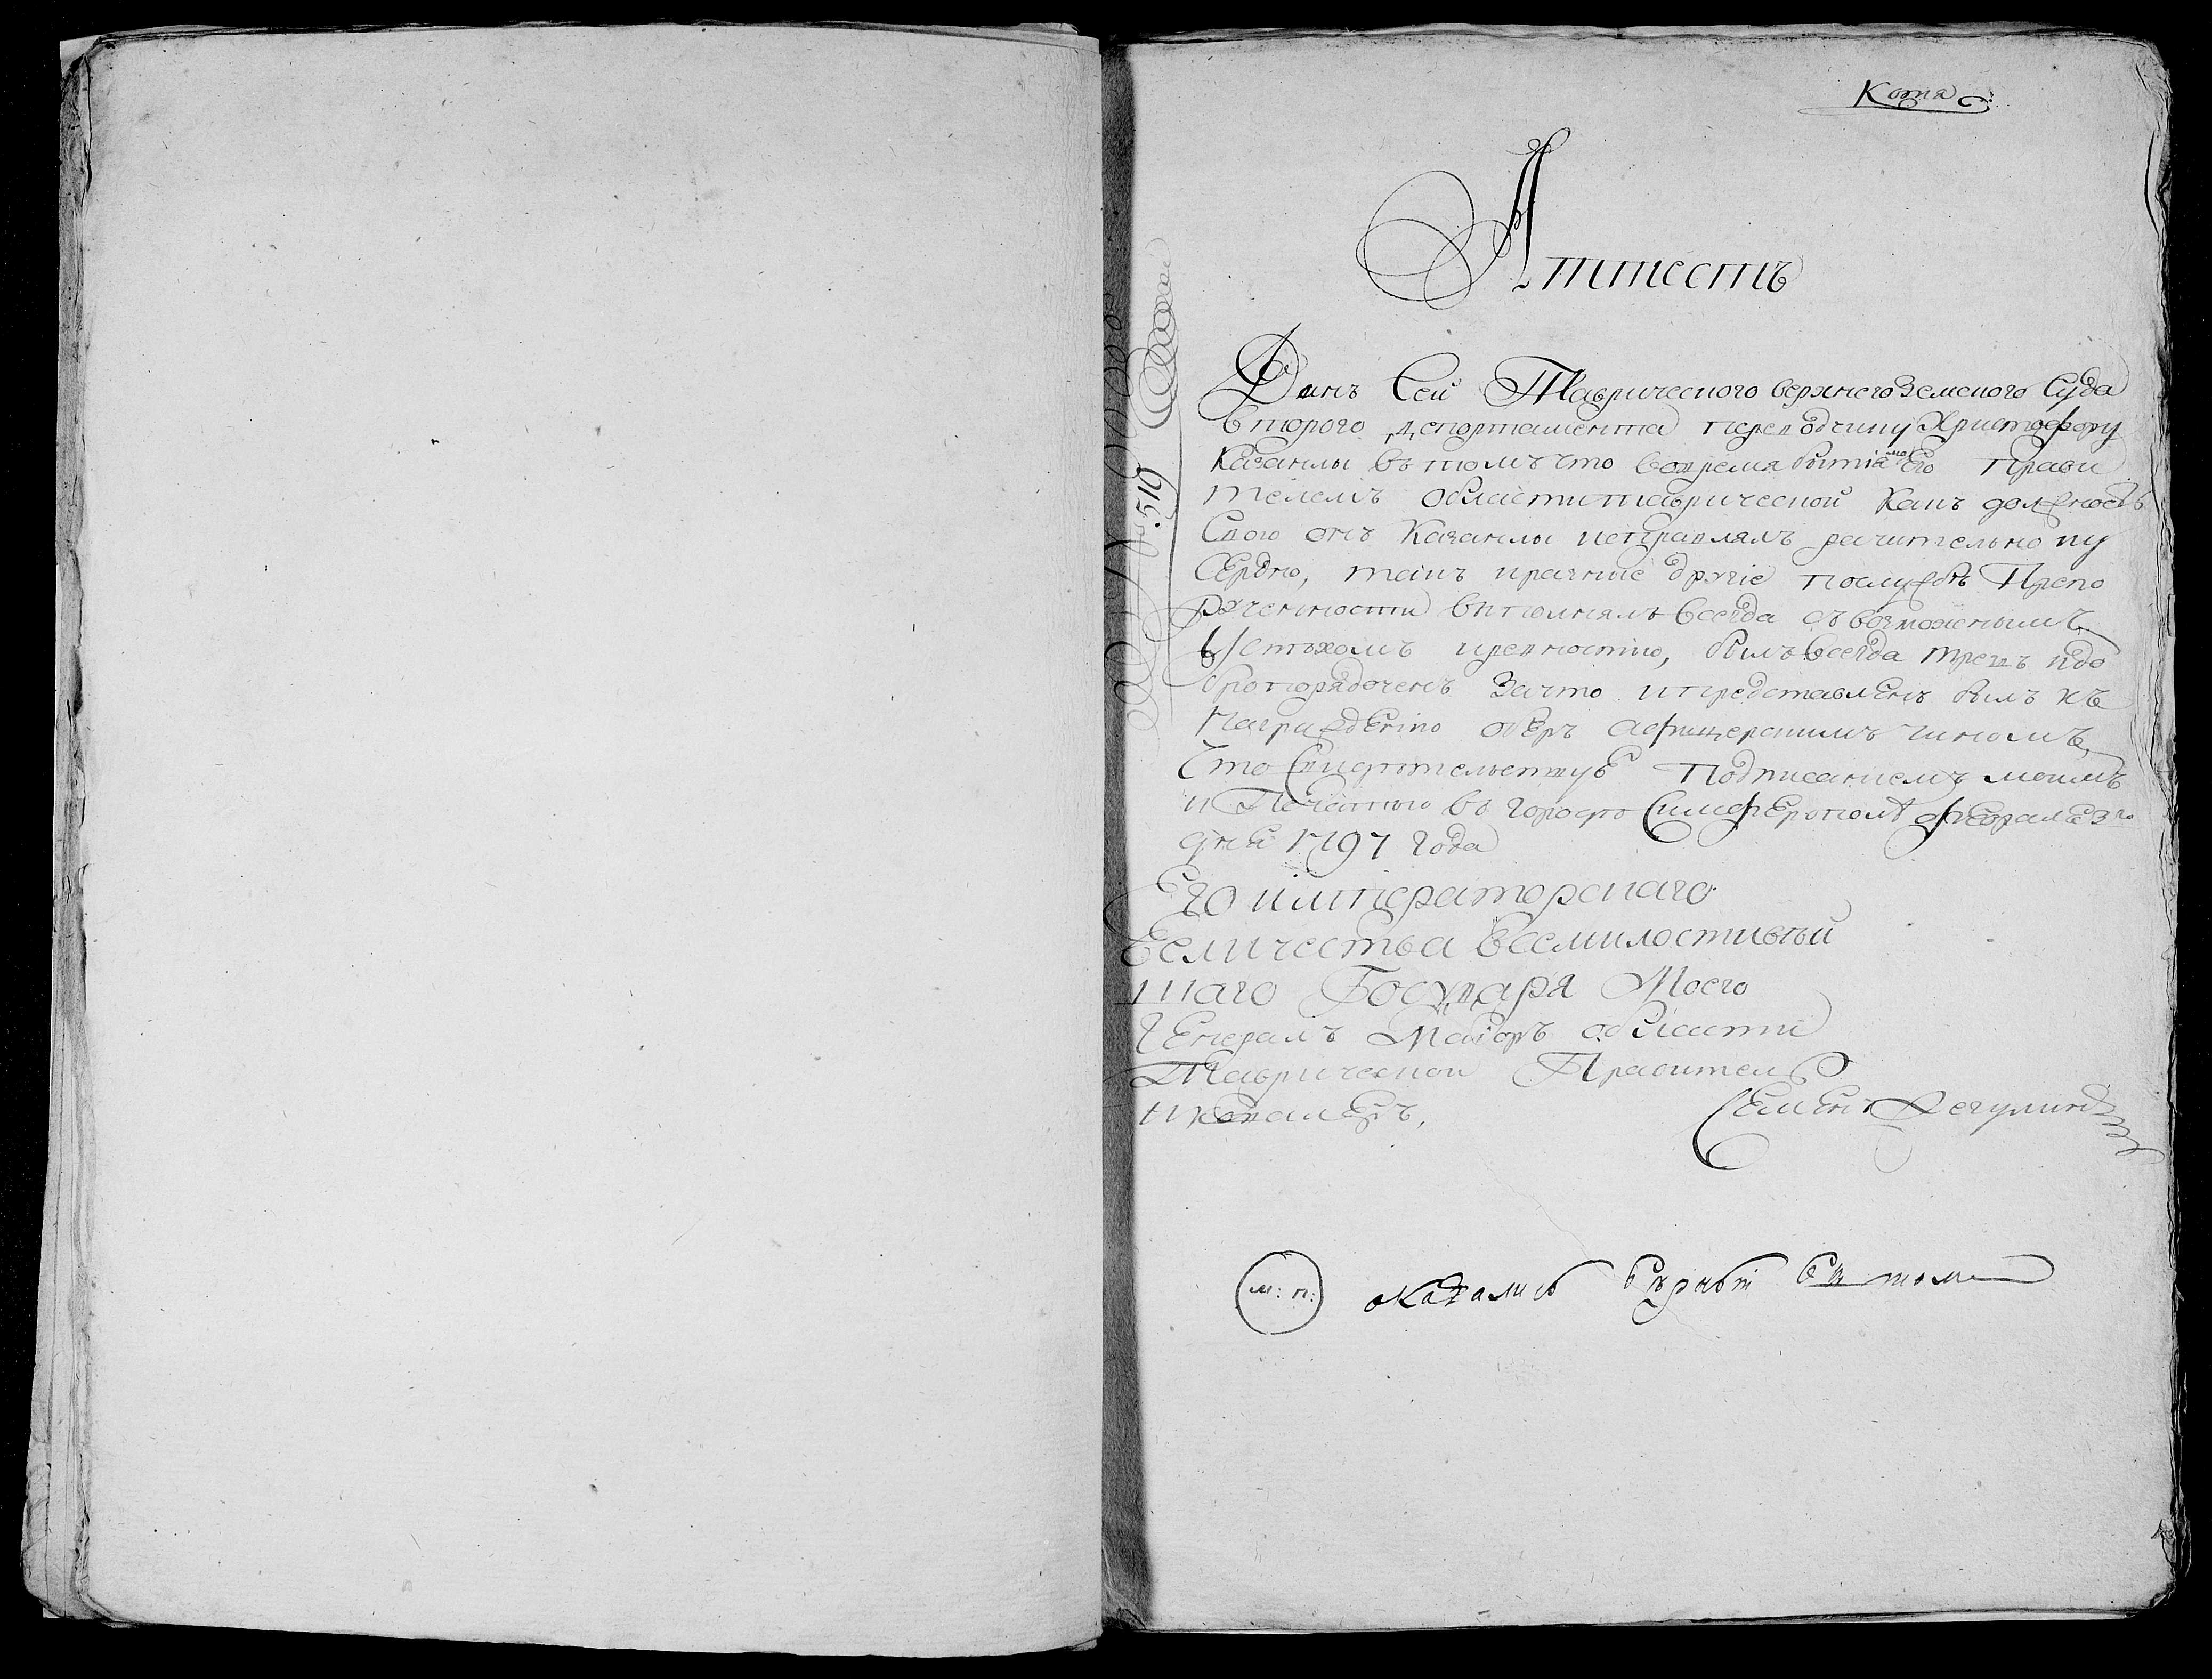 Копия
Аттестъ
Данъ Сей Таврического верхнего Земского Суда
второго департамента переводчику Христофору
Качанлы въ томъ что вовремя бытiя моего Прави
телемъ области таврической какъ должность
Свою онъ Качанлы исправлялъ рачительно иу
Сердно, такъ ипрочие другiе послужбъ Препо
рученности выполнялъ всегда съ возможнымъ
Успѣхомъ иревностiю, былъ всегда трезвъ идо
бропорядоченъ Зачто ипредставленъ былъ къ
Награжденiю оберъ афицерскимъ чиномъ,
Что Свидѣтельствуе Подписаниемъ моимъ
и Печатью въ городѣ Симферополѣ февраля 3го
дня 1797 года
Его императорскаго
Величества Всемилостивѣй
шаго Государя Моего
Генералъ Маiоръ области
Таврической Правитель
икавалеръ,
Семенъ Жегулинъ
м: п: